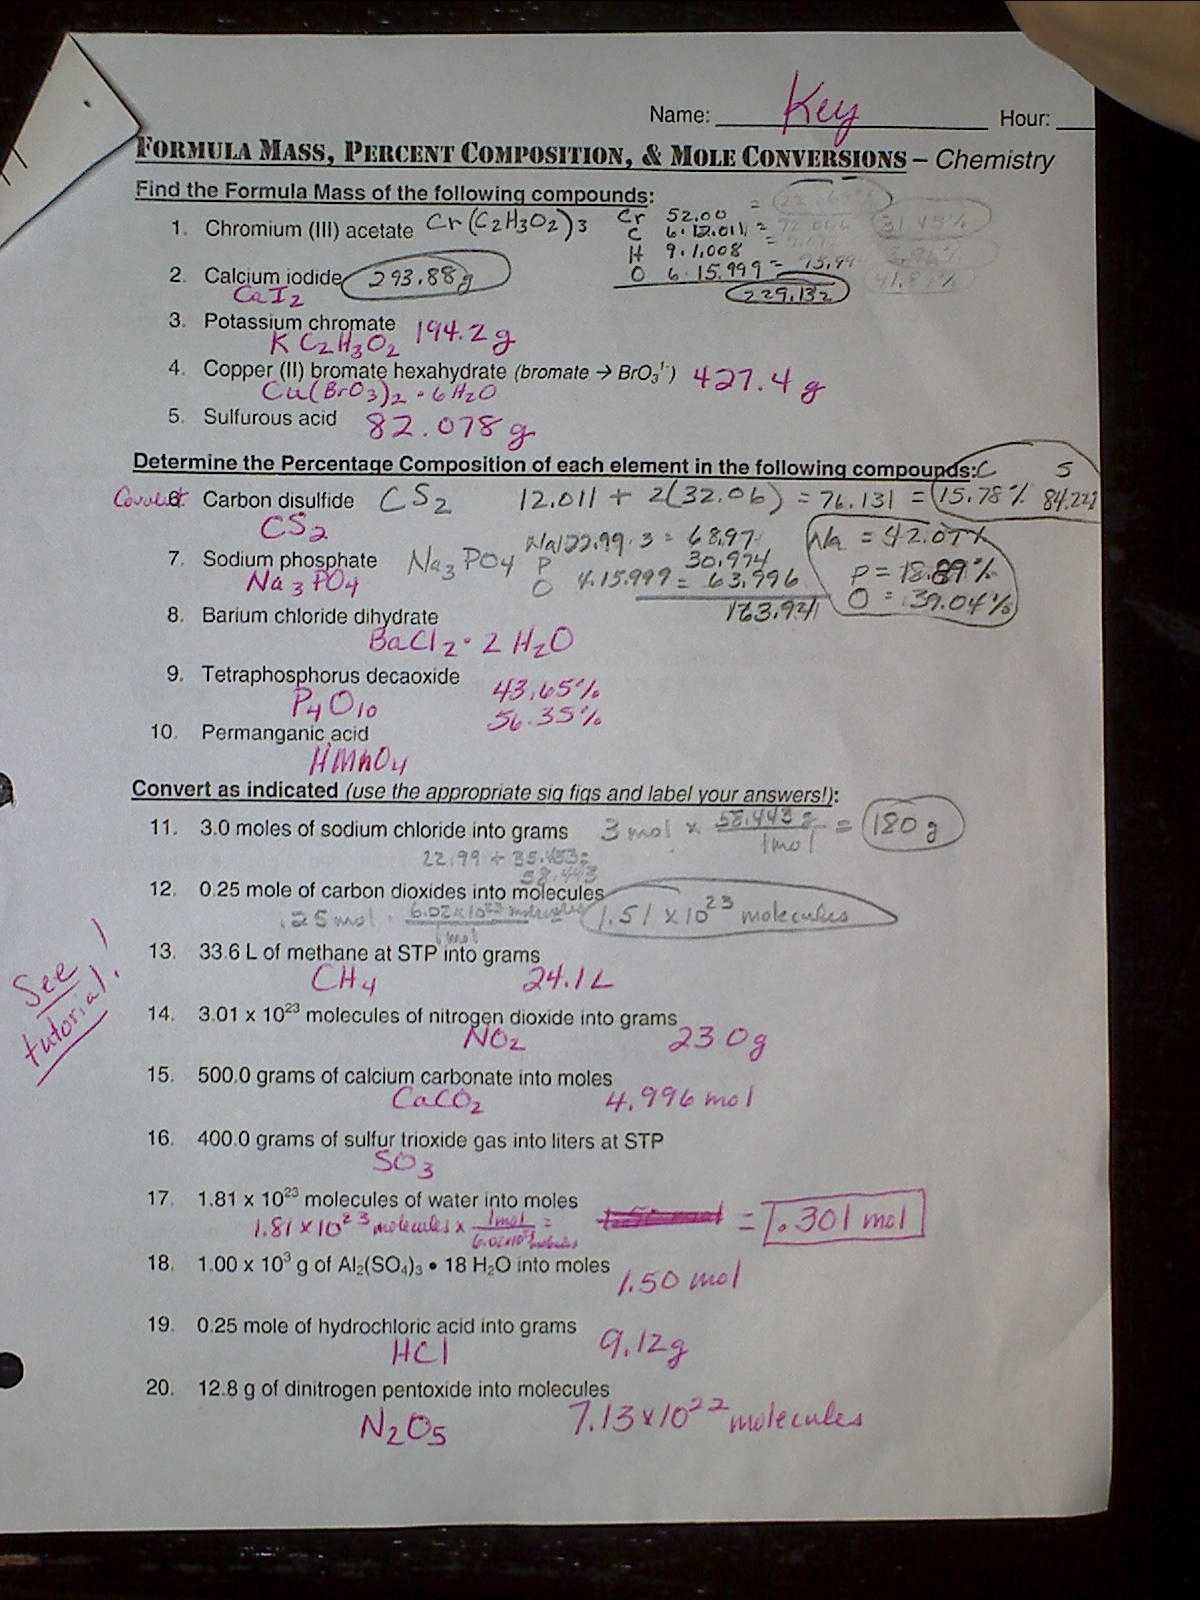 Name: Key Hour:
FORMULA MASS, PERCENT COMPOSITION, & MOLE CONVERSIONS – Chemistry
Find the Formula Mass of the following compounds:
1. Chromium (III) acetate Cr(C2H3O2)3
Cr 52.00
C 6·12.011 = 72.066 31.45%
H 9·1.008 =
O 6·15.999 = 95.99
229.132
2. Calcium iodide 293.88g
CaI2
3. Potassium chromate 194.2g
KC2H3O2
4. Copper (II) bromate hexahydrate (bromate → BrO3¹⁻) 427.4g
Cu(BrO3)2·6H2O
5. Sulfurous acid 82.078g
Determine the Percentage Composition of each element in the following compounds: C S
6. Carbon disulfide CS2 12.011 + 2(32.06) = 76.131 = 15.78% 84.22%
CS2
7. Sodium phosphate Na3PO4
Na3PO4
Na 22.99·3 = 68.97
P 30.974
O 4·15.999 = 63.996
163.94
Na = 42.07%
P = 18.89%
O = 39.04%
8. Barium chloride dihydrate
BaCl2·2H2O
9. Tetraphosphorus decaoxide 43.65%
P4O10 56.35%
10. Permanganic acid
HMnO4
Convert as indicated (use the appropriate sig figs and label your answers!):
11. 3.0 moles of sodium chloride into grams 3 mol x 58.443g / 1mol = 180g
22.99 + 35.453 =
58.443
12. 0.25 mole of carbon dioxides into molecules
.25 mol · 6.02x10²³ molecules / 1mol 1.51 x10²³ molecules
13. 33.6 L of methane at STP into grams
CH4 24.1L
14. 3.01 x 10²³ molecules of nitrogen dioxide into grams
NO2 23.0g
See tutorial!
15. 500.0 grams of calcium carbonate into moles
CaCO2 4.996 mol
16. 400.0 grams of sulfur trioxide gas into liters at STP
SO3
17. 1.81 x 10²³ molecules of water into moles
1.81 x10²³ molecules x 1mol / 6.02x10²³ molecules = = .301 mol
18. 1.00 x 10³ g of Al2(SO4)3 • 18 H2O into moles 1.50 mol
19. 0.25 mole of hydrochloric acid into grams
HCl 9.12g
20. 12.8 g of dinitrogen pentoxide into molecules
N2O5 7.13x10²² molecules